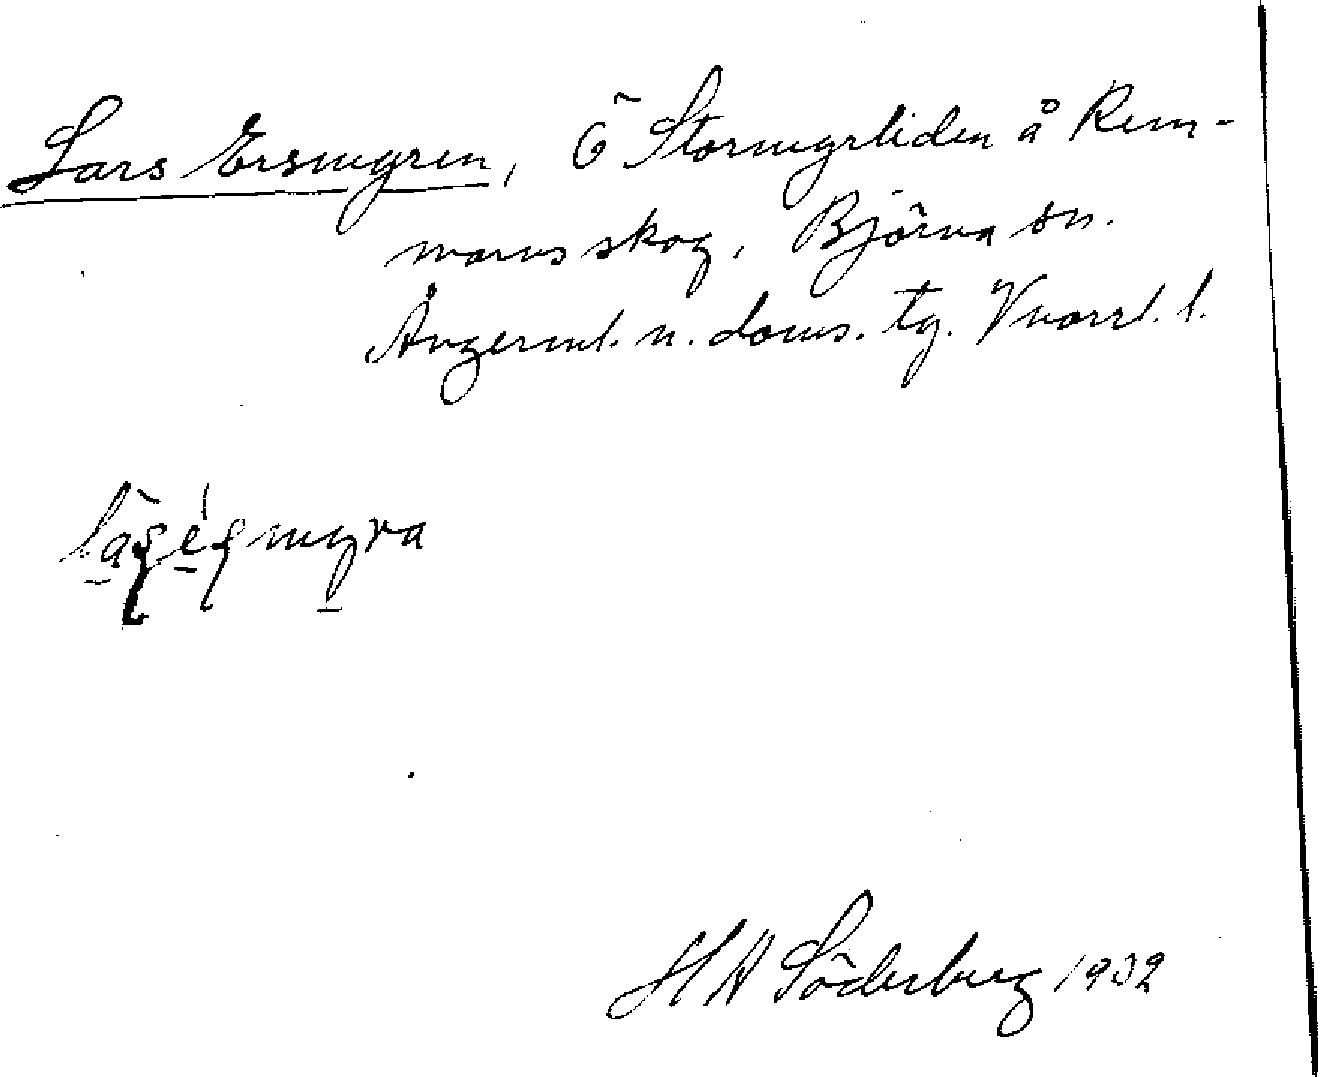 Lars Ersmyren, Ö Stormyrliden å Rem-
mars skog, Björna sn.
Ångerml. n. doms. tg. Vnorrl. l.
H A Söderberg 1932